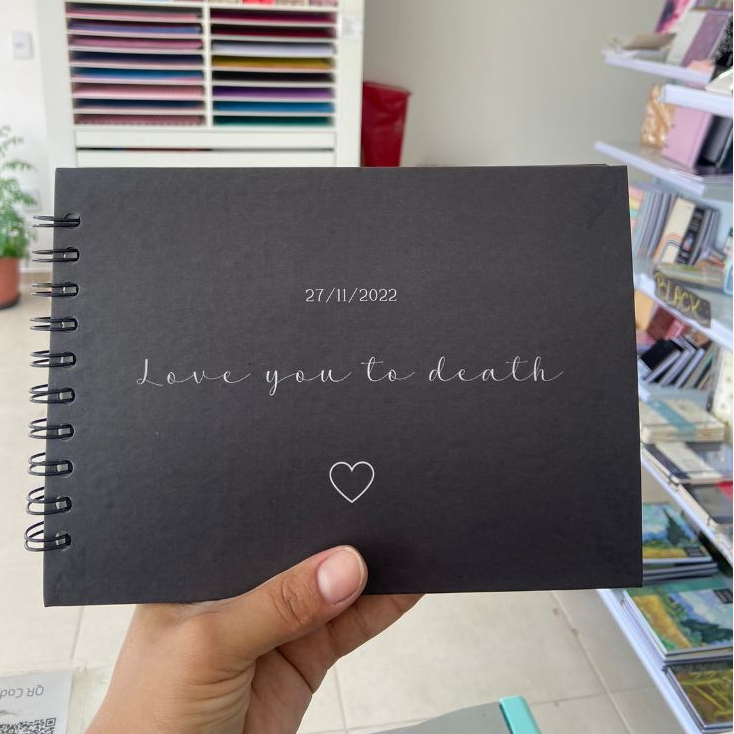 27/11/2022
Love you to death
BLACK
QR Cod